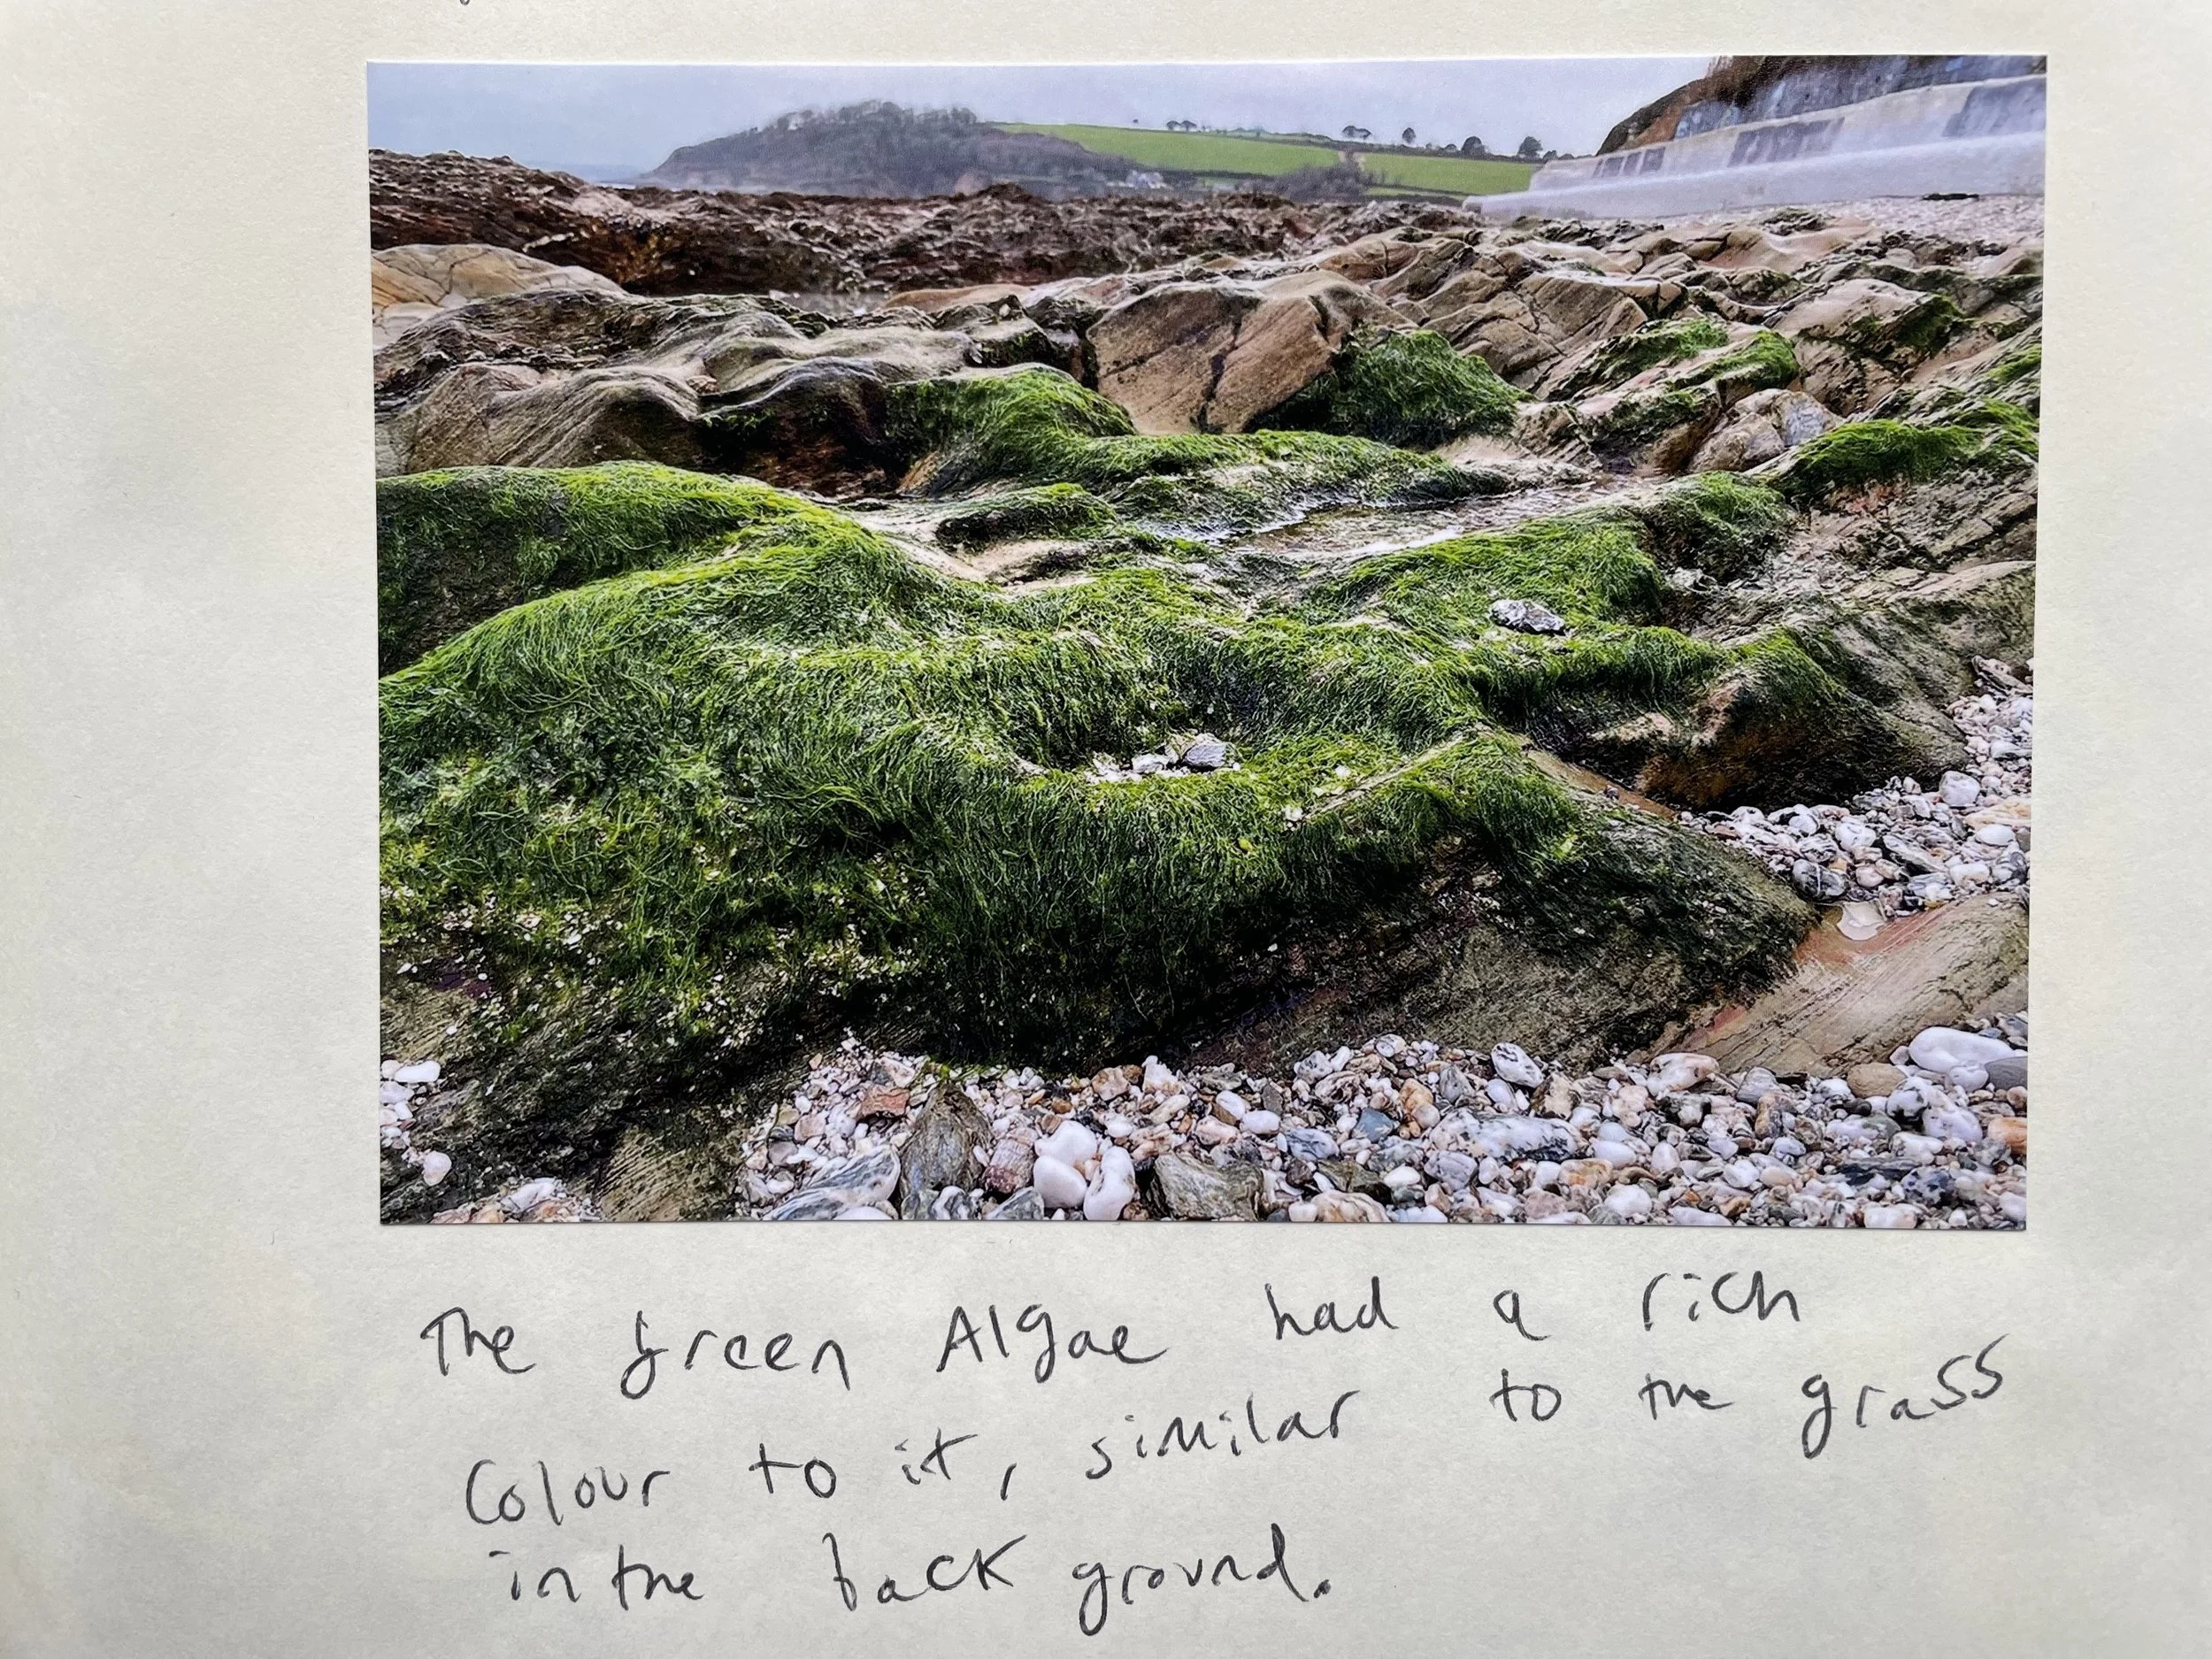 The green Algae had a rich
Colour to it, similar to the grass
in the back ground.